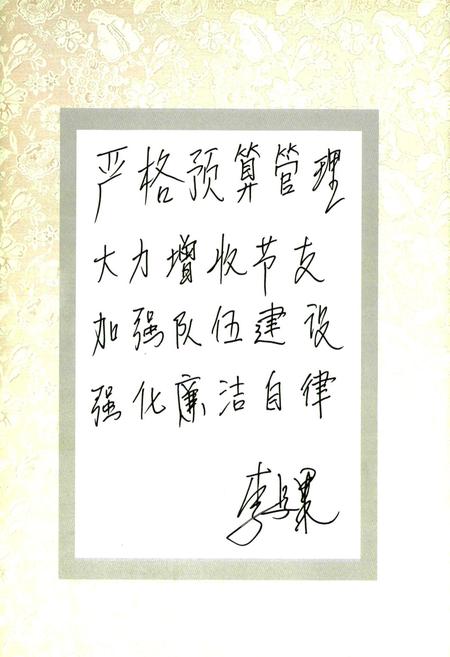 严格预算管理
大力增收节支
加强队伍建设
强化廉洁自律
李